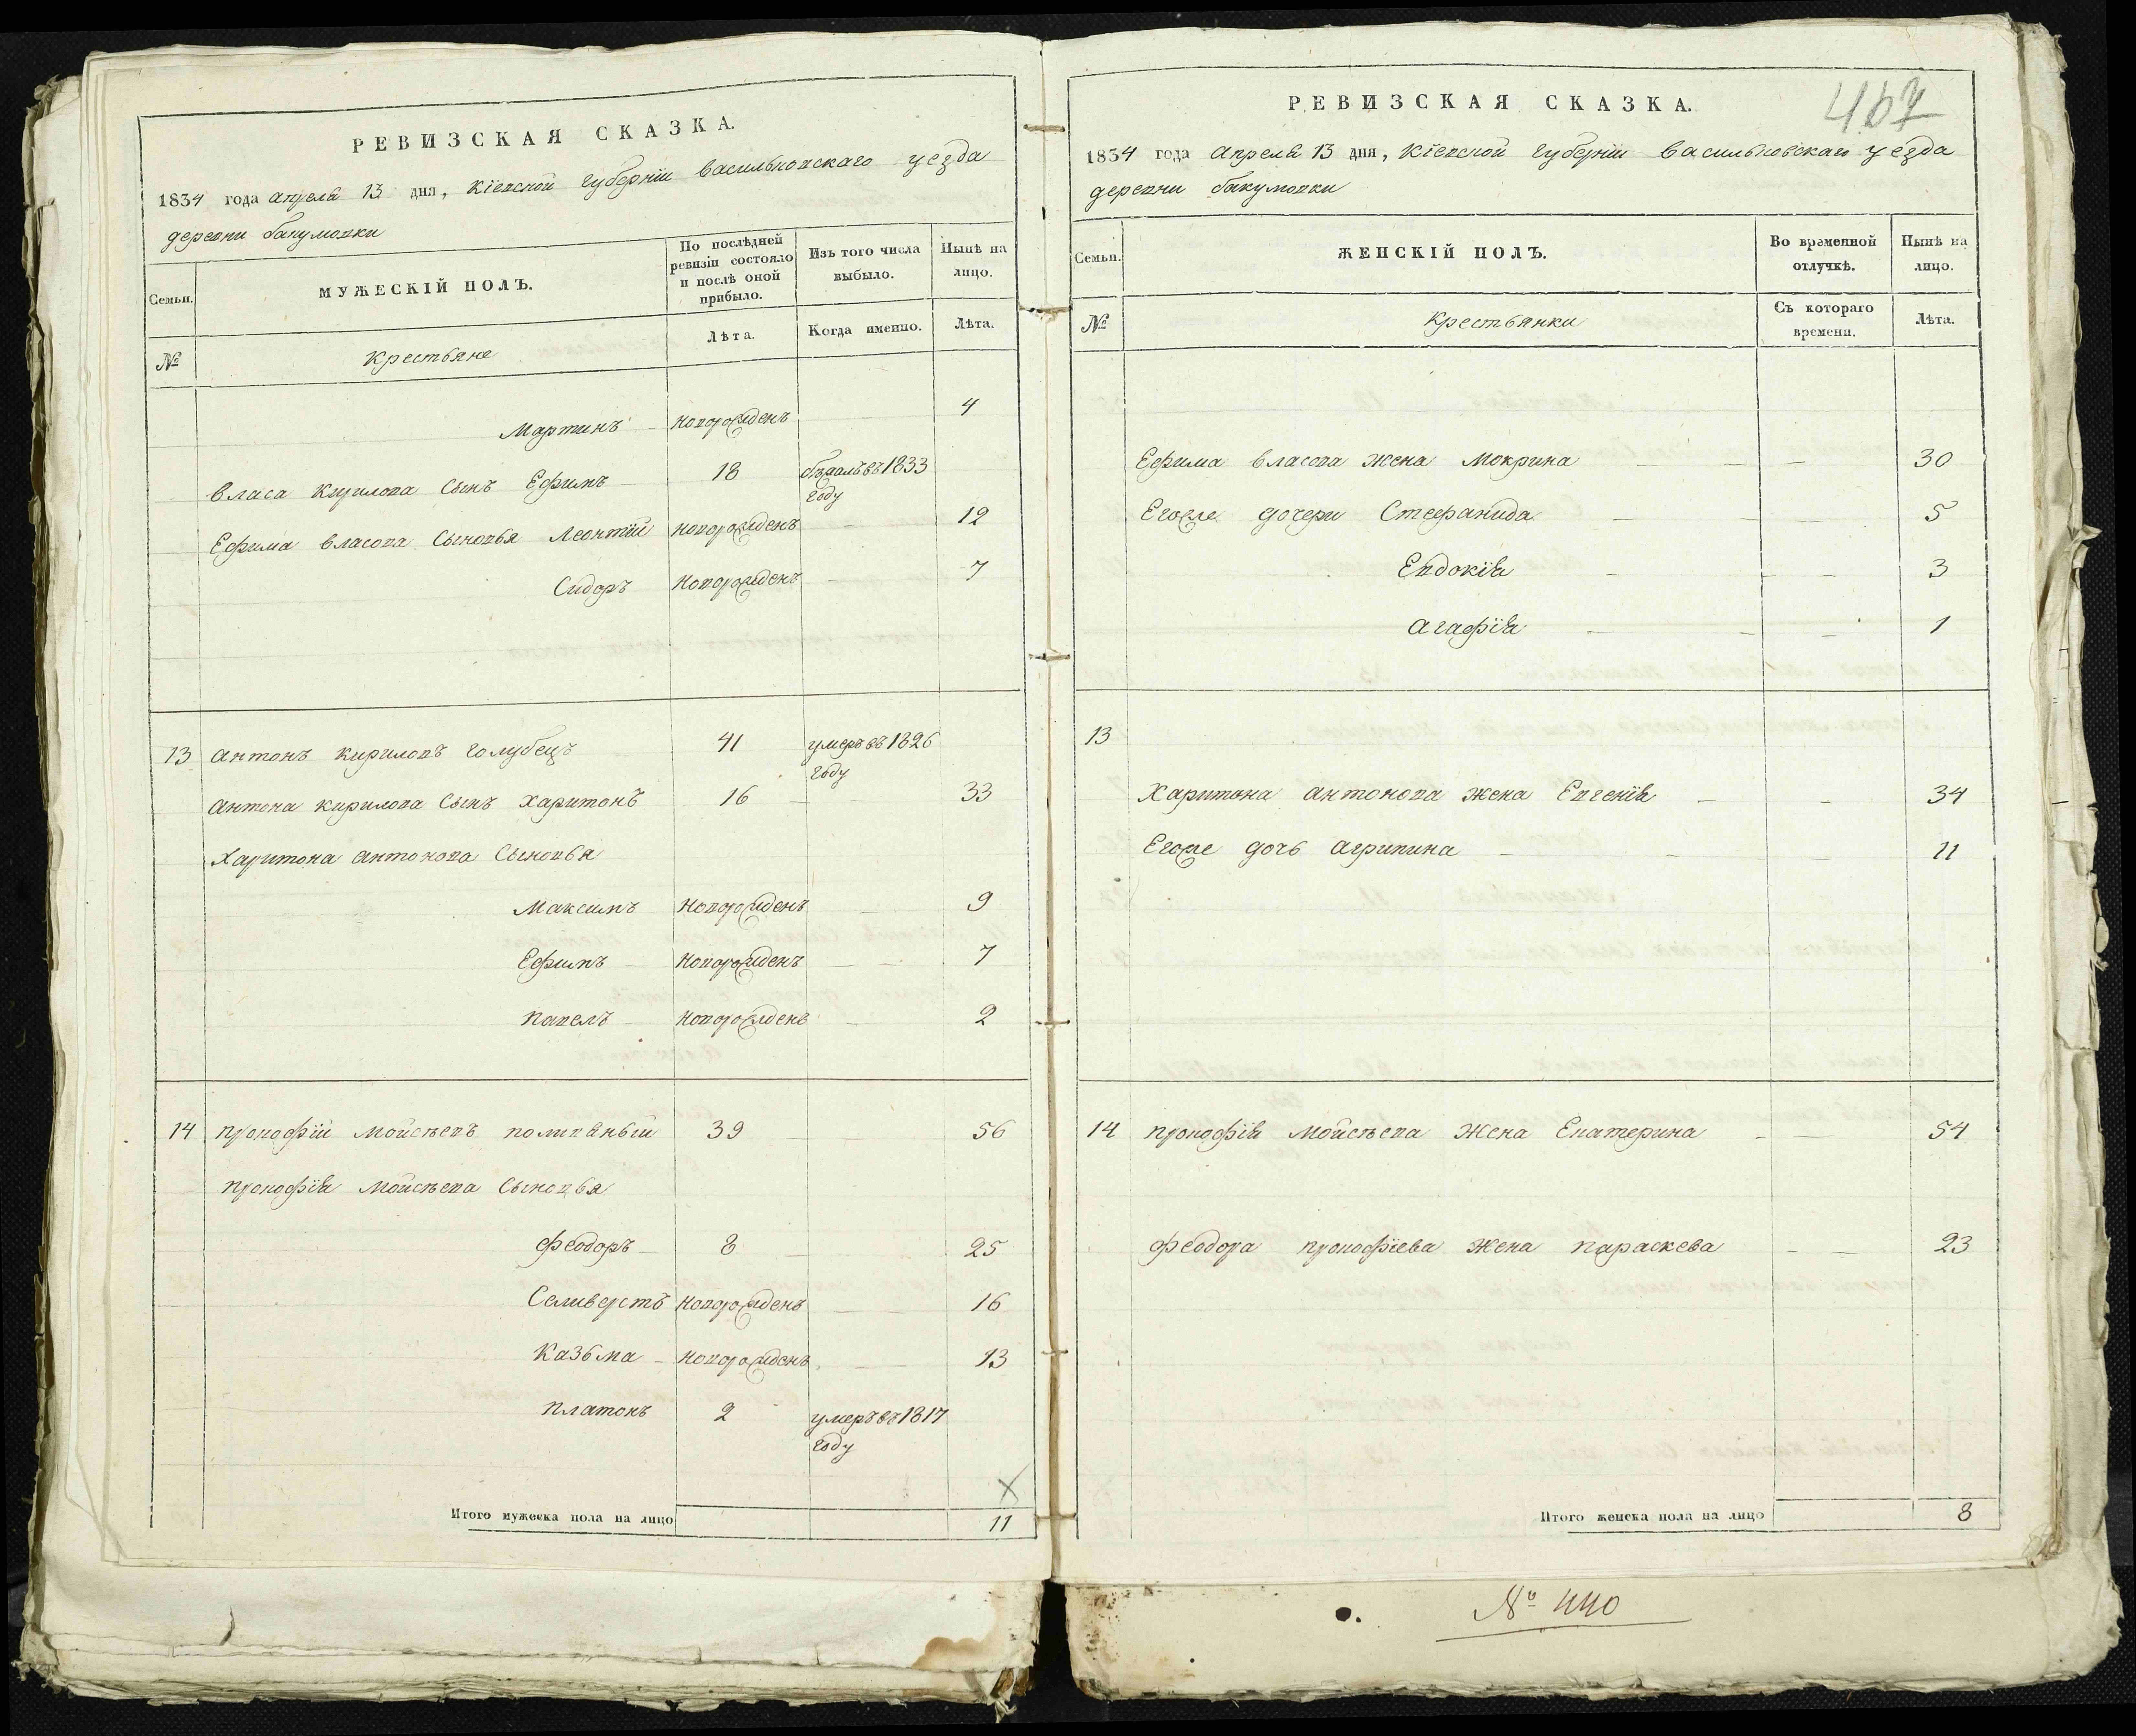 РЕВИЗСКАЯ СКАЗКА.
1834 года апреля 13 дня, Кіевской губерніи васильковскаго уезда
деревни бакумовки
Семьи.
МУЖЕСКІЙ ПОЛЪ.
По послѣдней ревизіи состояло и послѣ оной прибыло.
Изъ того числа выбыло.
Нынѣ на лицо.
№
Крестьяне
Лѣта.
Когда именно.
Лѣта.
Мартинъ новорожденъ 4
Власа Кирилова сынъ Ефимъ 18 бѣжалъ въ 1833
году
Ефима власова сыновья Леонтій новорожденъ 12
Сидоръ новорожденъ 7
13 Антонъ Кириловъ голубецъ 41 умеръ въ 1826
году
Антона кирилова сынъ харитонъ 16 33
Харитона антонова сыновья
Максимъ новорожденъ 9
Ефимъ новорожденъ 7
павелъ новорожденъ 2
14 прокофій Мойсѣевъ поливаный 39 56
прокофія Мойсѣева сыновья
феодоръ 8 25
Селиверстъ новорожденъ 16
Казьма новорожденъ 13
платонъ 2 умеръ въ 1817
году
Итого мужеска пола на лицо 11
467
РЕВИЗСКАЯ СКАЗКА.
1834 года апреля 13 дня, Кіевской губерніи васильковскаго уезда
деревни бакумовки
Семьи.
ЖЕНСКІЙ ПОЛЪ.
Во временной отлучкѣ.
Нынѣ на лицо.
№
Крестьянки
Съ котораго времени.
Лѣта.
Ефима власова жена Мокрина 30
Егоже дочери Стефанида 5
Евдокія 3
агафія 1
13
Харитона антонова жена Евгенія 34
Егоже дочь агрипина 11
14 прокофія Мойсѣева жена Екатерина 54
феодора прокофіева жена параскева 23
Итого женска пола на лицо 8
№ 440